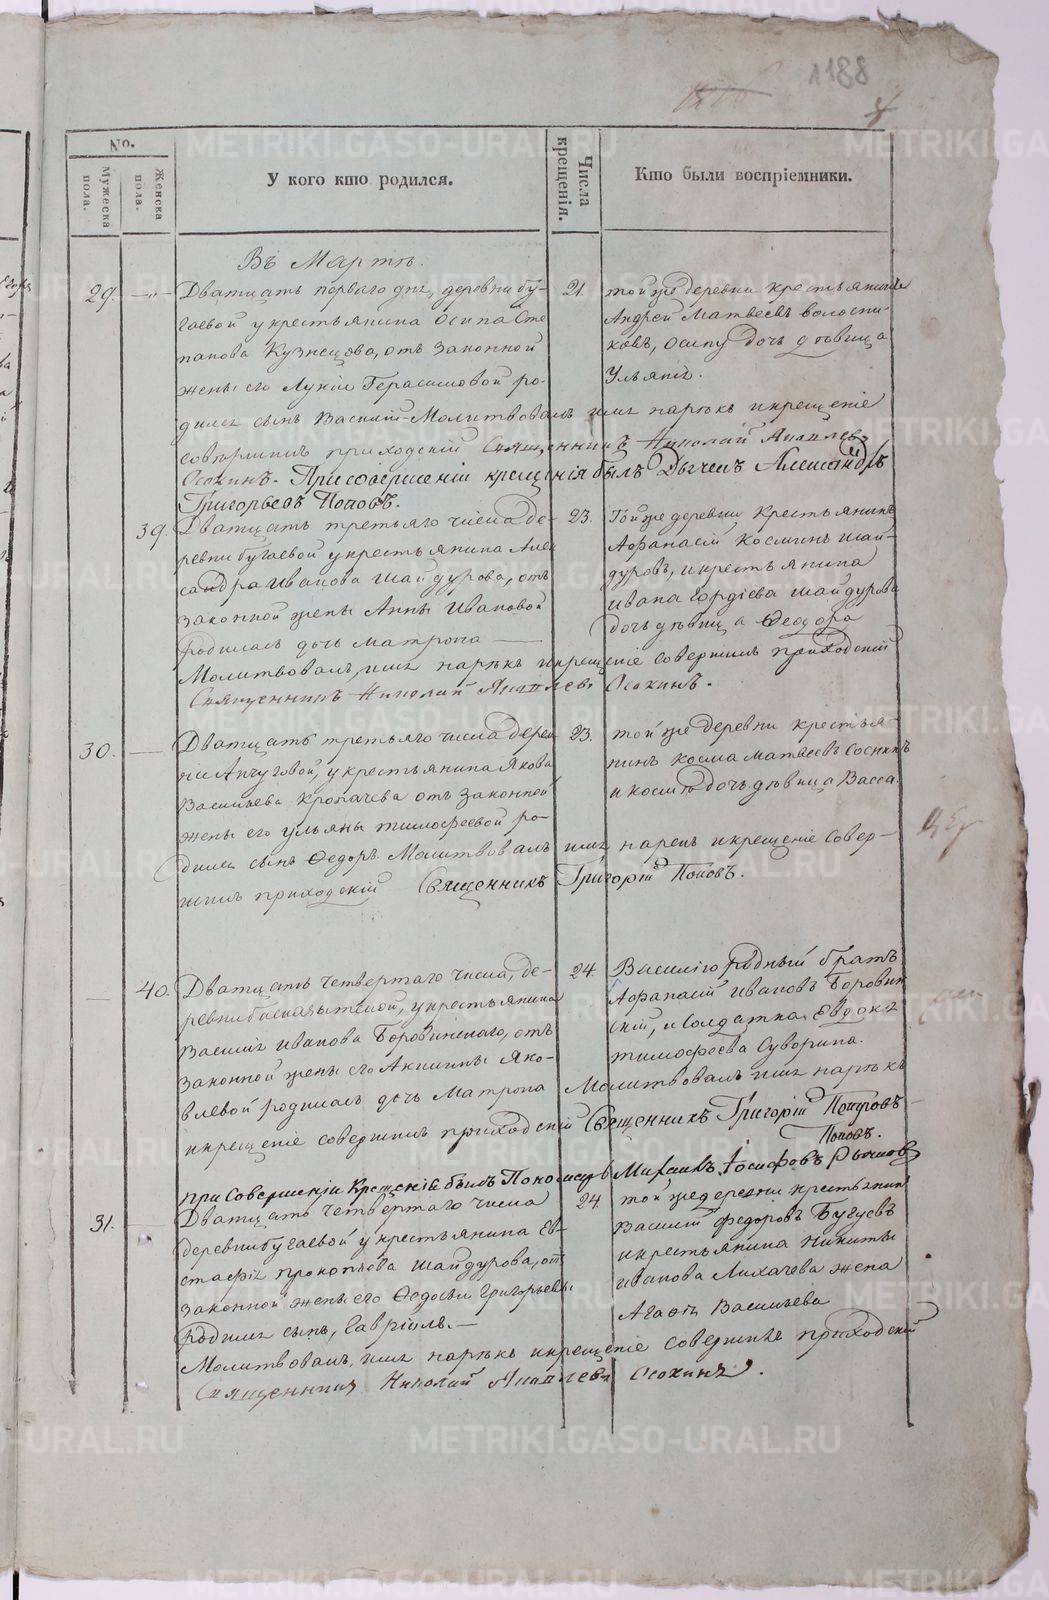 1188
No.
Мужеска пола.
Женска пола.
У кого кто родился.
Числа крещенія.
Кто были воспріемники.
Въ Мартѣ.
29.
Дватцать перваго дня, деревни Бу-
гаевой у крестьянина Осипа Сте
панова Кузнецова, отъ законной
жены его Лукіи Герасимовой ро-
21.
той же деревни крестьянинъ
Андрей Матвеевъ
Осипу дочь дѣвица
Ульяна.
дился сынъ Василій Молитвовалъ имя нарѣкъ и крещеніе
совершилъ приходскій Священникъ Николай Яковлевъ
Осокинъ. При совершеніи крещенія былъ Дьячекъ Александръ
Григорьевъ Поповъ.
39.
Дватцать третьяго числа де-
ревни Бугаевой у крестьянина Алек
сандра Иванова Шайдурова, отъ
законной жены Анны Ивановой
родилась дочь Матрона
23.
Той же деревни Крестьянинъ
Афанасій Косминъ Шай-
дуровъ, и крестьянина
Ивана Гордіева Шайдурова
дочь дѣвица Феодора
Молитвовалъ, имя нарѣкъ и крещеніе совершилъ приходскій
Священникъ Николай Яковлевъ Осокинъ.
30.
Дватцать третьяго числа дерев
ни Анчуговой, у крестьянина Якова
Васильева Кропачева отъ законной
жены его Ульяны Тимофеевой ро-
23.
той же деревни крестья-
нинъ Косма Матвеевъ Соснинъ
и Космы дочь дѣвица Васса.
дился сынъ Федоръ. Молитвовалъ имя нарекъ и крещеніе Совер-
шилъ приходскій Священникъ Григорій Поповъ.
40.
Дватцать четвертаго числа, де-
ревни у крестьянина
Василія Иванова Боровинскаго, отъ
законной жены его Акилины Яко-
24.
Василію родный братъ
Афанасій Ивановъ Боровин
скій, и солдатка Евдокія
Тимофеева Суворина.
влевой родилась дочь Матрона Молитвовалъ имя нарѣкъ
и крещеніе совершилъ приходскій Священникъ Григорій Петровъ
Поповъ.
при Совершеніи Крещеній былъ Пономарь Михаилъ Іосифовъ
31.
Дватцать четвертаго числа
деревни Бугаевой у крестьянина Ев-
стафія Прокопьева Шайдурова, отъ
законной жены его Федосьи Григорьевы
родился сынъ, Гавріилъ.
24.
той же деревни крестьянинъ
Василій Федоровъ Бугуевъ
и крестьянина Никиты
Иванова Лихачева жена
Агафія Васильева
Молитвовалъ, имя нарѣкъ и крещеніе совершилъ приходскій
Священникъ Николай Яковлевъ Осокинъ.
METRIKI.GASO-URAL.RU